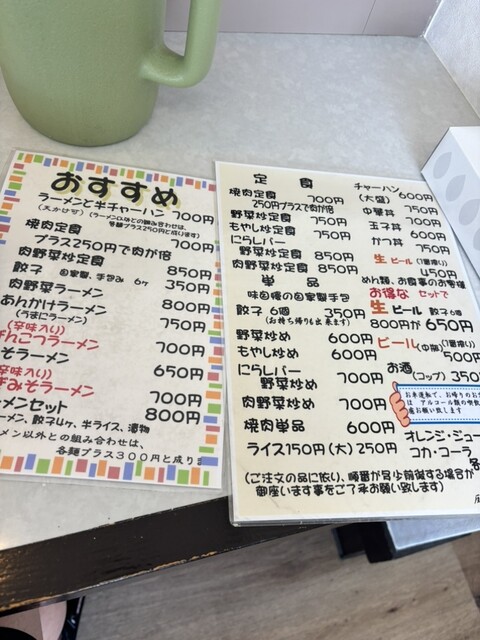 おすすめ
ラーメンと半チャーハン 700円
(天かけ可) (ラーメン以外との組み合わせは、
各麺プラス250円と成ります)
焼肉定食 700円
プラス250円で肉が倍
肉野菜炒定食 850円
餃子 自家製、手包み 6ヶ 350円
肉野菜ラーメン 800円
あんかけラーメン 750円
(うまにラーメン)
(辛味入り)
んこつラーメン 700円
そラーメン 650円
(辛味入り)
みそラーメン 700円
メンセット 800円
ーメン、餃子4ヶ、半ライス、漬物
メン以外との組み合わせは、
各麺プラス300円と成りま
定食
焼肉定食 700円
250円プラスで肉が倍
野菜炒定食 750円
もやし炒定食 750円
にらレバー
野菜炒定食 850円
肉野菜炒定食 850円
単品
味自慢の自家製手包
餃子 6個 350円
(お持ち帰りも出来ます)
野菜炒め 600円
もやし炒め 600円
にらレバー
野菜炒め 700円
肉野菜炒め 700円
焼肉単品 600円
ライス150円 (大) 250円
チャーハン 600円
(大盛) 700円
中華丼 750円
玉子丼 600円
かつ丼 750円
生ビール (1番搾り)
450円
めん類、お食事のお客様
お得な セットで
生ビール 餃子6個
800円が650円
ビール (中瓶) (1番搾り)
500円
お酒
(コップ) 350
お車運転で、お帰りのお
は アルコール類の
お願い致します
オレンジ・ジュー
コカ・コーラ
各
(ご注文の品に依り、順番が多少前後する場合が
御座います事をご了承お願い致します)